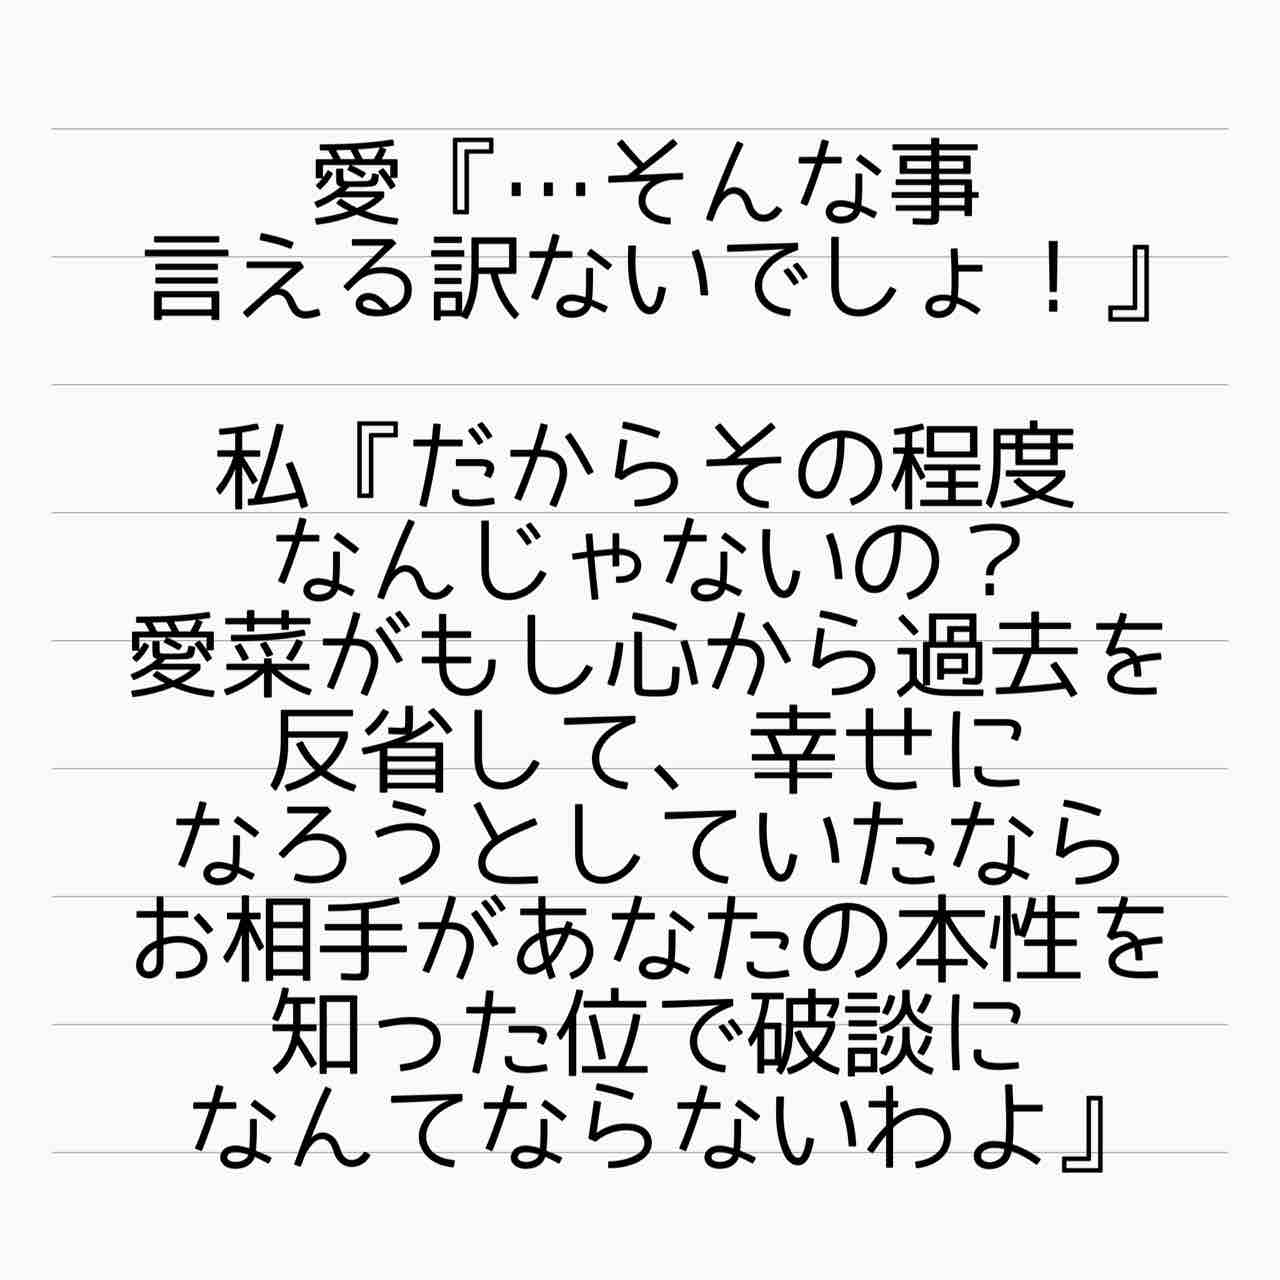 愛『…そんな事
言える訳ないでしょ！』
私『だからその程度
なんじゃないの？
愛菜がもし心から過去を
反省して、幸せに
なろうとしていたなら
お相手があなたの本性を
知った位で破談に
なんてならないわよ』